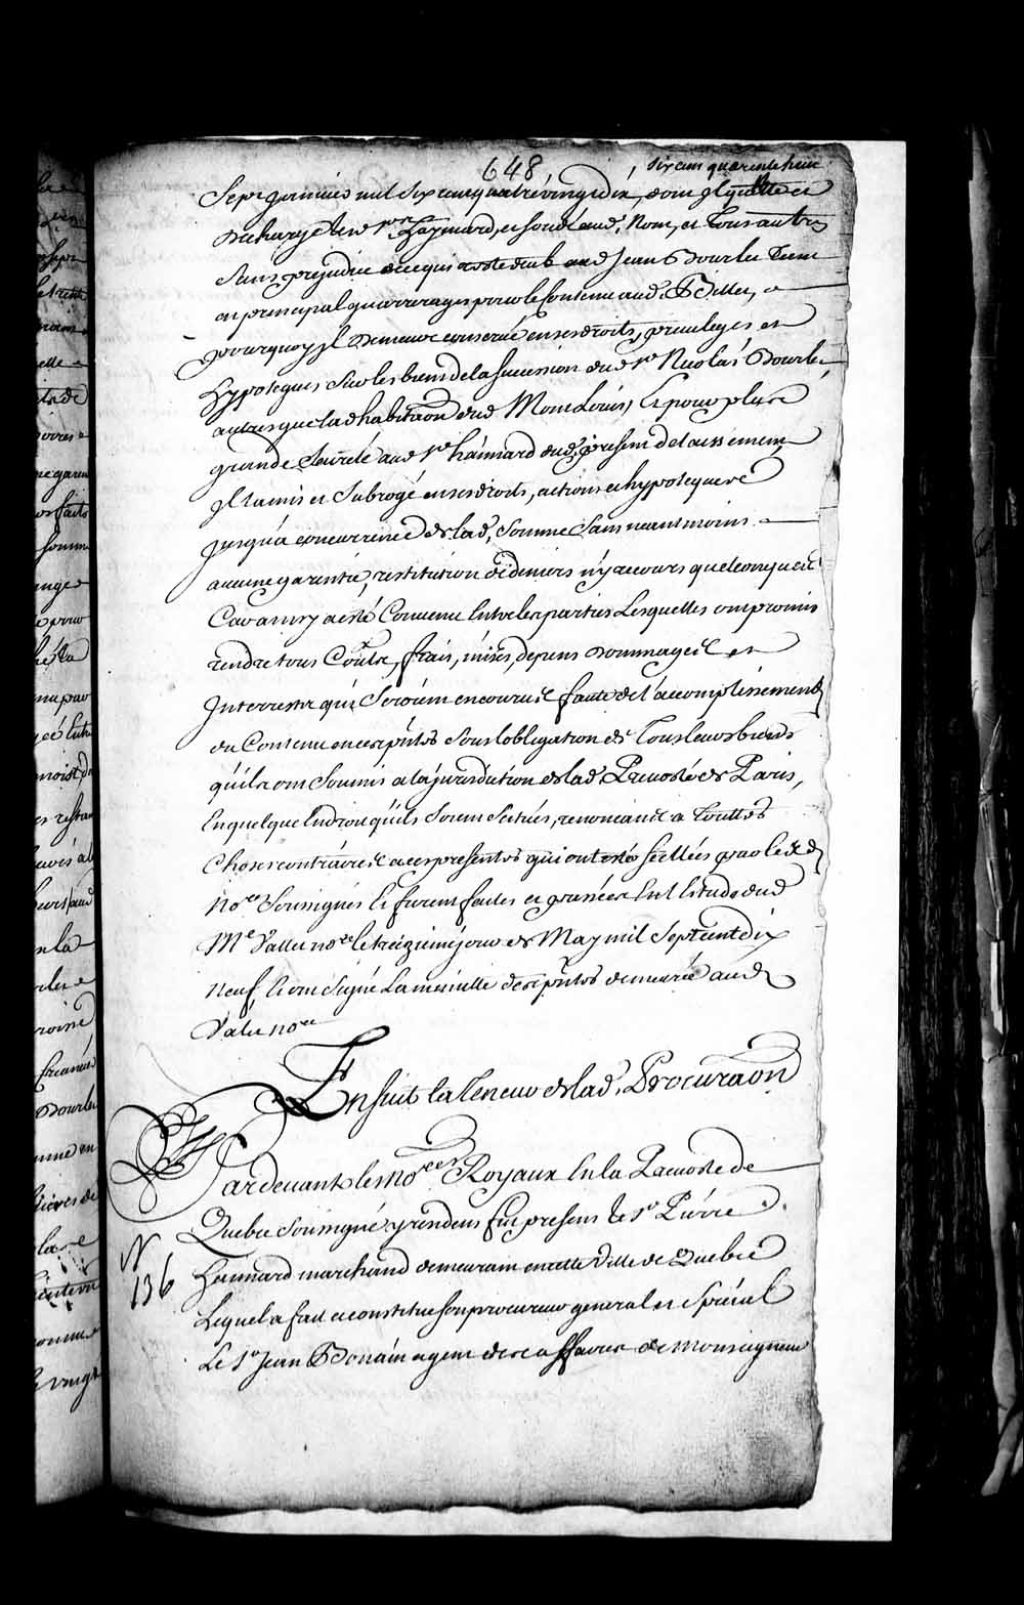 648 / six cens quarente huit
Sept Janvier mil six cens quatre vingt dix, dont il quitte et
decharge led sr haymard, esd et aud. Nom, et tous autres
Sans prejudice de ce qui reste deub aud Jean Bourlet tant
en principal qu'arrerages pour le contenu aud. Billet, a
pourquoy il demeure conservé en ses droits, privileges et
hypoteques sur les biens de la succession dud sr Nicolas Bourlet
autres que lad habitaon dud Mont Louis, Et pour plus
grande seureté aud sr haimard dud. present delaissement
Il l'a mis et subrogé en ses droits, actions et hypoteques
jusqu'a concurrence de lad. somme sans neantmoins
aucune garentie, restitution de deniers n'y recours quelconque
Car ainsy a esté Convenu Entre les parties Lesquelles ont promis
rendre tous Couts, frais, mises, depens dommages et
Interrests qui seroient encourus faute de l'accomplissement
du Contenu en ces pntes sous l'obligation de Tous leurs biens
qu'ils ont soumis a la jurisdiction de lad. Prevosté de Paris,
En quelque Endroit qu'ils soient scitués, renonceant a Touttes
Choses contraires a ces presentes qui ont esté scellées par lesd
nores soussignés Et furent faites et passées En l'Etude dud
Me Vallet nore le treizieme jour de May mil sept cent dix
neuf Et ont signé La minutte des pntes demeurée aud
Valet nore
Ensuit la Teneur de lad. Procuraon
Pardevant les nores Royaux En la Prevosté de
Quebec soussignés y residens fut present le sr Pierre
N
136
haimard marchand demeurant en cette Ville de Quebec
Lequel a fait et constitué son procureur general et special
Le sr Jean Bonnain agent des affaires de Monseigneur